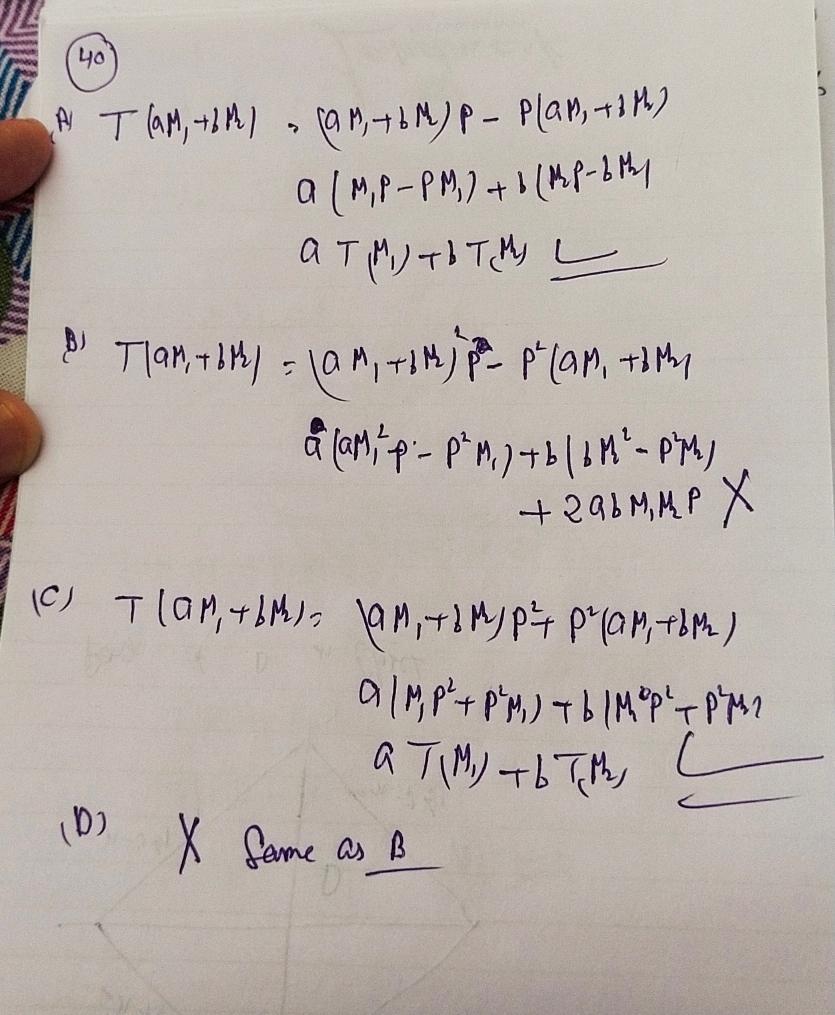 40
A) T (aM₁+bM₂) = (aM₁+bM₂)P - P(aM₁+bM₂)
a (M₁P-PM₁) + b (M₂P-bM₂)
a T(M₁) + b T(M₂)
B) T(aM₁+bM₂) = (aM₁+bM₂)²P - P²(aM₁+bM₂)
a(aM₁²P - P²M₁) + b(bM₂² - P²M₂)
+ 2abM₁M₂P X
(C) T(aM₁+bM₂) = (aM₁+bM₂)P² + P²(aM₁+bM₂)
a(M₁P² + P²M₁) + b(M₂P² + P²M₂)
a T(M₁) + b T(M₂)
(D) X Same as B